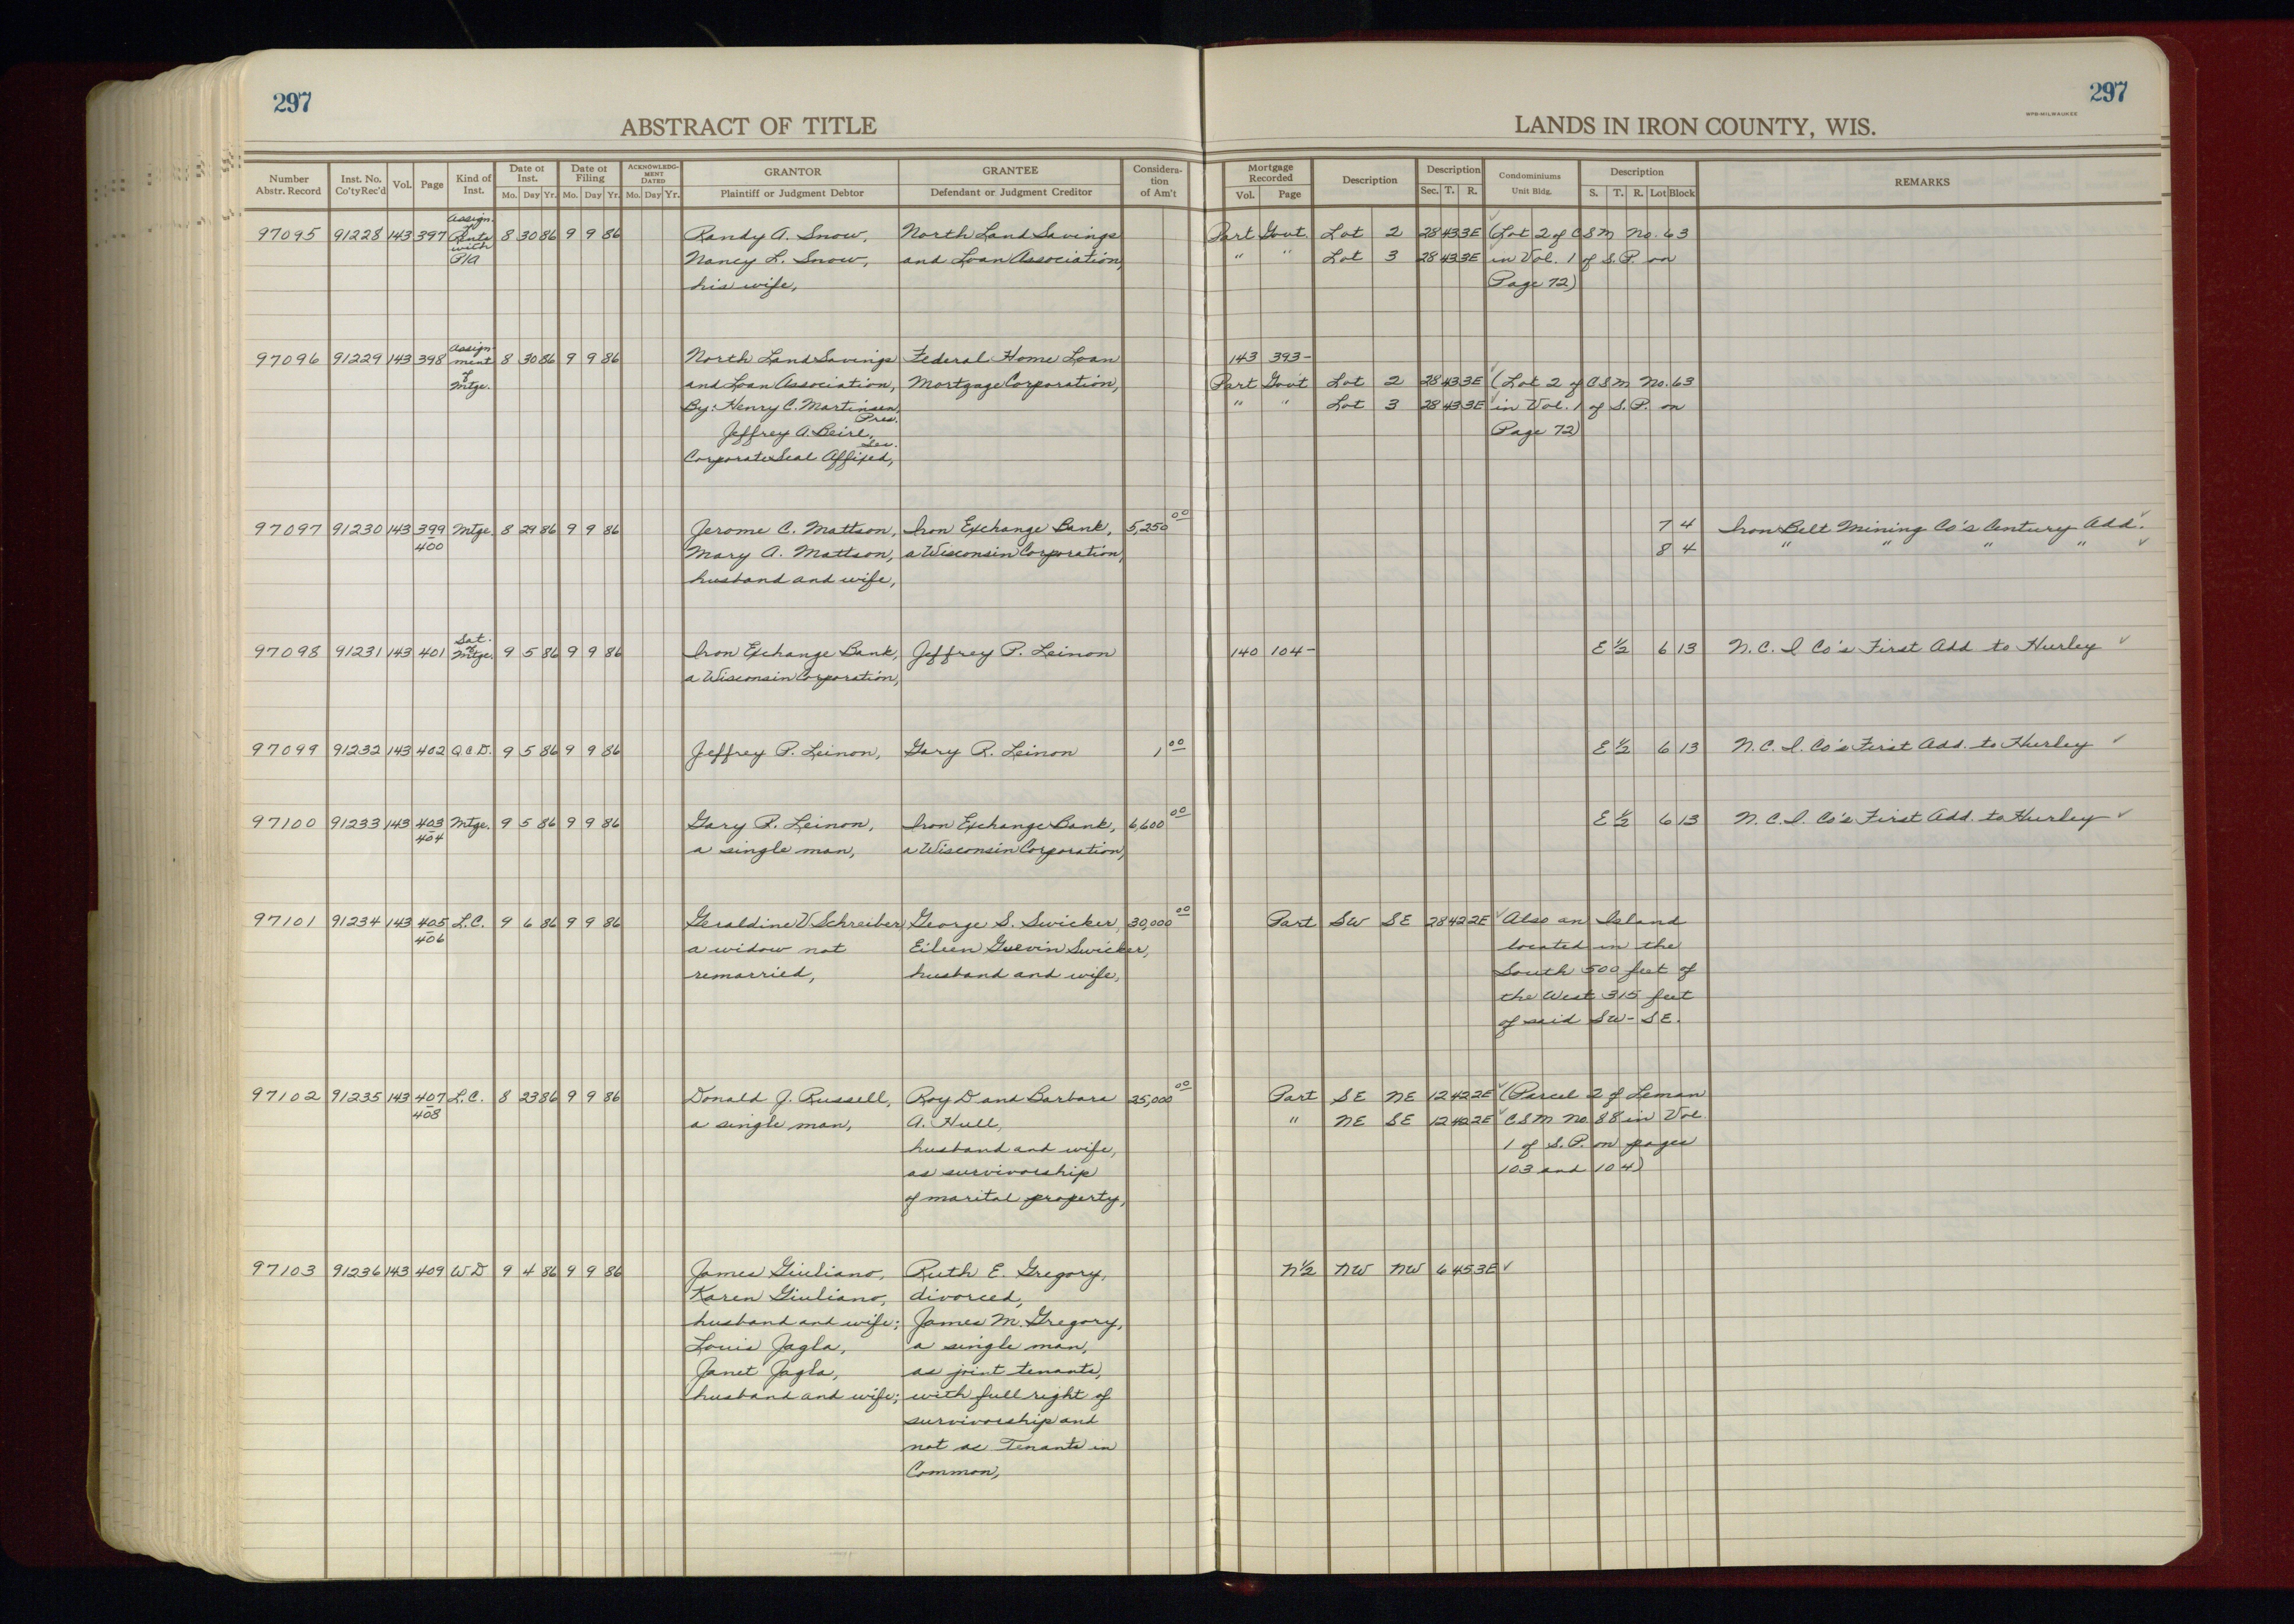 297
297
ABSTRACT OF TITLE
LANDS IN IRON COUNTY, WIS.
WPB-MILWAUKEE
Number Abstr. Record | Inst. No. Co'ty Rec'd | Vol. | Page | Kind of Inst. | Date of Inst. Mo. Day Yr. | Date of Filing Mo. Day Yr. | ACKNOWLEDGMENT DATED Mo. Day Yr. | GRANTOR Plaintiff or Judgment Debtor | GRANTEE Defendant or Judgment Creditor | Consideration of Am't | Mortgage Recorded Vol. Page | Description | Description Sec. T. R. | Condominiums Unit Bldg. | Description S. T. R. Lot Block | REMARKS
97095 91228 143 397 Assign. of Rents with P/A 8 30 86 9 9 86 Randy A. Snow, North Land Savings Part Govt. Lot 2 28 43 3E (Lot 2 of CSM No. 63
Nancy L. Snow, and Loan Association, " " Lot 3 28 43 3E in Vol. 1 of S.P. on
his wife, Page 72)
97096 91229 143 398 Assignment of Mtge. 8 30 86 9 9 86 North Land Savings Federal Home Loan 143 393-
and Loan Association, Mortgage Corporation, Part Gov't Lot 2 28 43 3E (Lot 2 of CSM No. 63
By: Henry C. Martinsen, Pres. " " Lot 3 28 43 3E in Vol. 1 of S. P. on
Jeffrey A. Beirl, Sec. Page 72)
Corporate Seal Affixed,
97097 91230 143 399-400 Mtge. 8 29 86 9 9 86 Jerome C. Mattson, Iron Exchange Bank, 5,250 00 7 4 Iron Belt Mining Co's Century Add.
Mary A. Mattson, a Wisconsin Corporation, 8 4 " " " "
husband and wife,
97098 91231 143 401 Sat. of Mtge. 9 5 86 9 9 86 Iron Exchange Bank, Jeffrey P. Leinon 140 104- E 1/2 6 13 N. C. I Co's First Add to Hurley
a Wisconsin Corporation,
97099 91232 143 402 Q C D. 9 5 86 9 9 86 Jeffrey P. Leinon, Gary R. Leinon 1 00 E 1/2 6 13 N. C. I. Co's First Add. to Hurley
97100 91233 143 403-404 Mtge. 9 5 86 9 9 86 Gary R. Leinon, Iron Exchange Bank, 6,600 00 E 1/2 6 13 N. C. I. Co's First Add. to Hurley
a single man, a Wisconsin Corporation,
97101 91234 143 405-406 L.C. 9 6 86 9 9 86 Geraldine V Schreiber, George S. Swicker, 30,000 00 Part SW SE 28 42 2E Also an Island
a widow not Eileen Guevin Swicker, located in the
remarried, husband and wife, South 500 feet of
the West 315 feet
of said SW - SE.
97102 91235 143 407-408 L.C. 8 23 86 9 9 86 Donald J. Russell, Roy D and Barbara 25,000 00 Part SE NE 12 42 2E (Parcel 2 of Leman
a single man, A. Hull, " NE SE 12 42 2E CSM No. 88 in Vol
husband and wife, 1 of S.P. on pages
as survivorship 103 and 104)
of marital property,
97103 91236 143 409 W D 9 4 86 9 9 86 James Giuliano, Ruth E. Gregory, N 1/2 NW NW 6 45 3E
Karen Giuliano, divorced,
husband and wife; James M. Gregory,
Louis Jagla, a single man,
Janet Jagla, as joint tenants,
husband and wife; with full right of
survivorship and
not as Tenants in
Common,